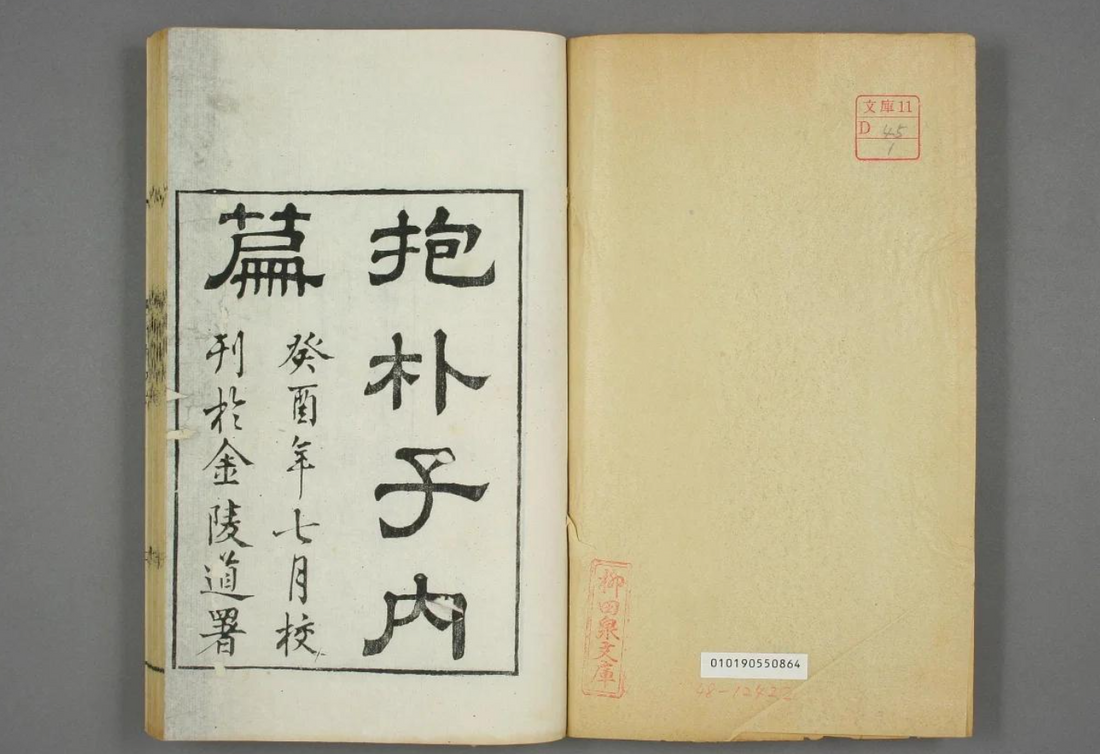 文庫11
D 45
1
柳田泉文庫
010190550864
抱朴子内
篇
癸酉年七月校
刊於金陵道署